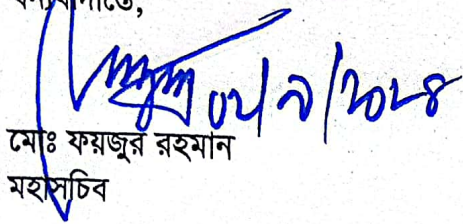 ধন্যবাদান্তে,
০২/৯/২০২৪
মোঃ ফয়জুর রহমান
মহাসচিব